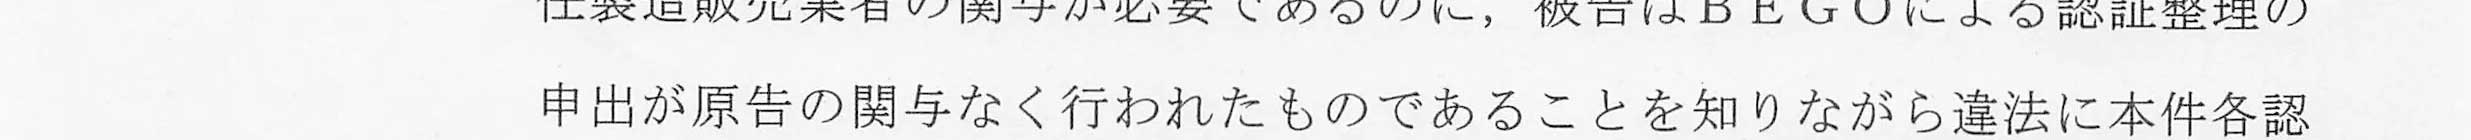 任製造販売業者の関与が必要であるのに，被告はＢＥＧＯによる認証整理の
申出が原告の関与なく行われたものであることを知りながら違法に本件各認